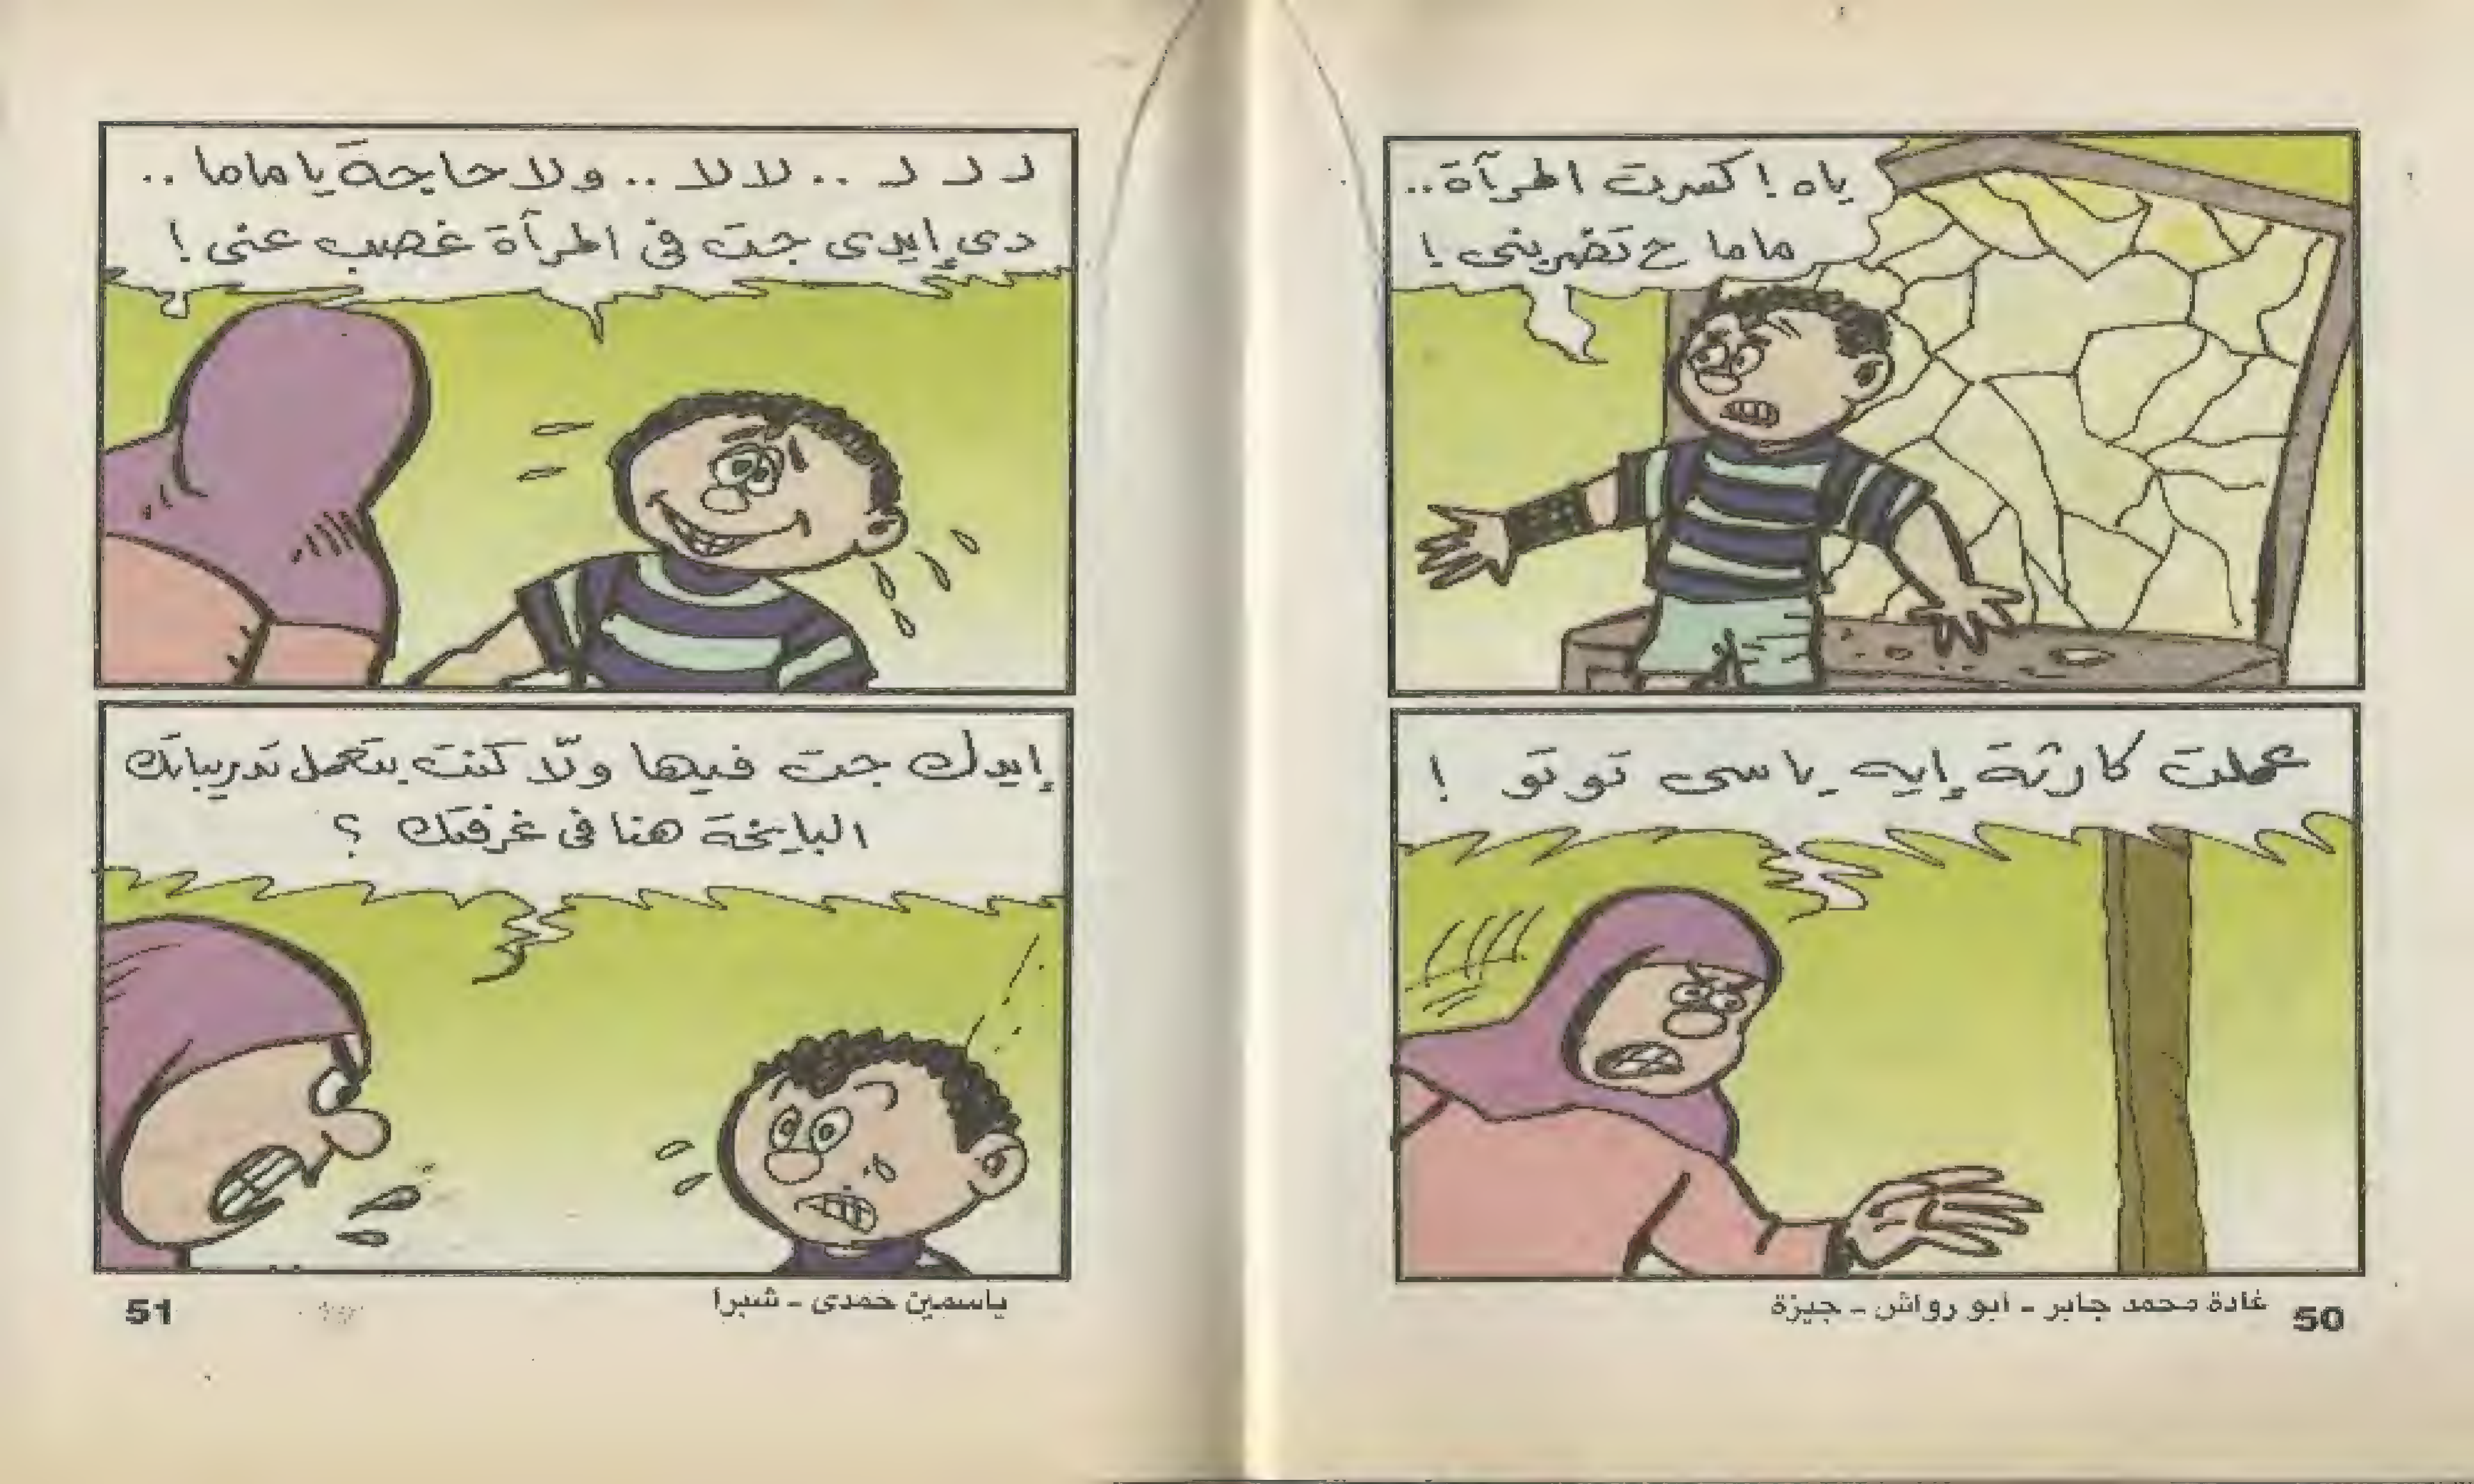 ياه ! كسرت المرآة..
ماما ح تضربنى !
عملت كارثة إيه ياسى توتو !
غادة محمد جابر - أبو رواش - جيزة
50
لـ لـ لـ .. لالا .. ولا حاجة يا ماما ..
دى إيدى جت فى المرآة غصب عنى !
إيدك جت فيها ولّا كنت بتعمل تدريباتك
البايخة هنا فى غرفتك ؟
ياسمين حمدى - شبرا
51